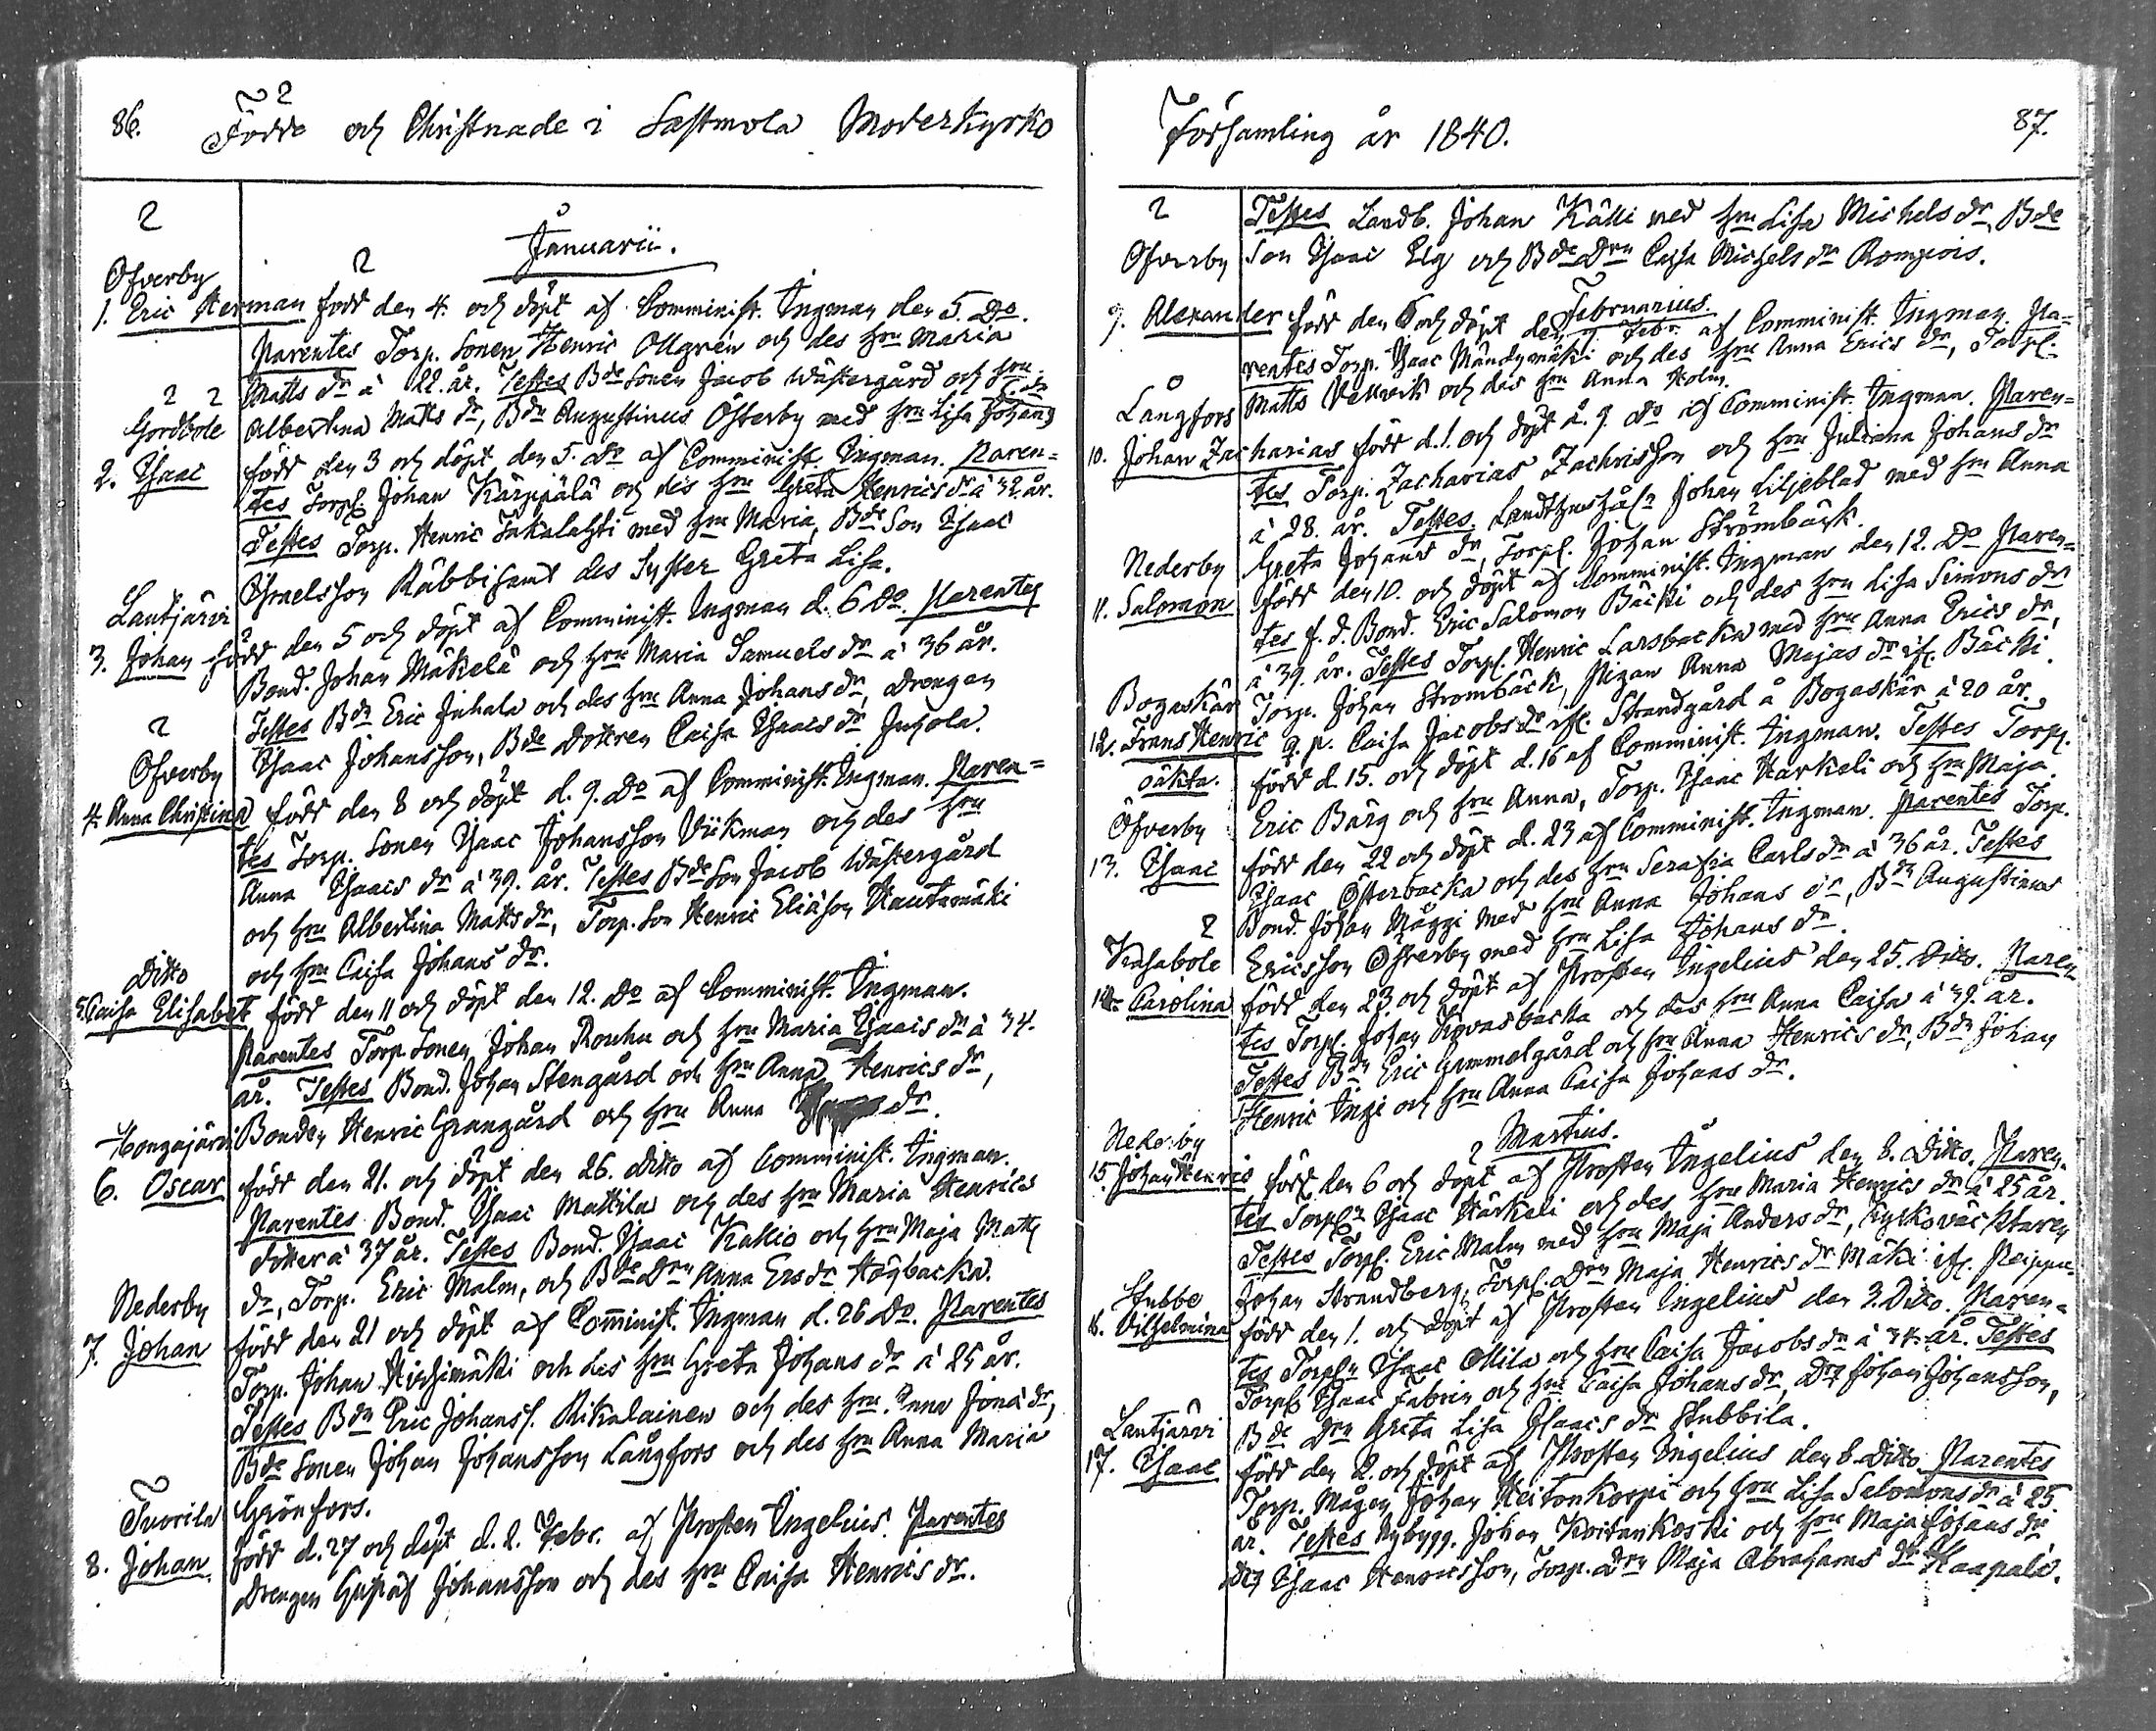 86. Födde och Christnade i Sastmola Moderkyrko
Januarii.
Ofverby
1. Eric Herman född den 4. och döpt af Comminist. Ingman den 5. Do.
Parentes Torp. Sonen Henric Ollgrén och des Hru Maria
Matts dr à 22. år. Testes Bde Sonen Jacob Wästergård och hru
Albertina Matts dr, Bdn Augustinus Österby med hru Lisa Johans dr
Gordbole
2. Isaac född den 3 och döpt den 5. do af Comminist. Ingman. Paren=
tes Torpf Johan Kärppälä och des hru Greta Henrics dr à 32 år.
Testes Torp. Henric Jakalahti med hru Maria, Bde Son Isaac
Israelsson Räbbi samt des Syster Greta Lisa.
Lautjärvi
3. Johan född den 5 och döpt af Comminist. Ingman d. 6 Do. Parentes
Bond. Johan Mäkelä och hru Maria Samuels dr à 36 år.
Testes Bdn Eric Juhala och des hru Anna Johans dr, drengen
Isaac Johansson, Bde dottren Caisa Isaacs dr Juhola.
Ofverby
4. Anna Christina född den 8 och döpt d. 9. do af Comminist. Ingman. Paren=
tes Torp. Sonen Isaac Johansson Viikman och des hru
Anna Isaacs dr à 39. år. Testes Bde Son Jacob Wästergård
och hru Albertina Matts dr, Torp. Son Henric Eliäson Hautamäki
och hru Caisa Johans dr.
Ditto
5. Caisa Elisabet född den 11 och döpt den 12. do af Comminist. Ingman.
Parentes Torp Sonen Johan Rouhu och hru Maria Isaacs dr à 34.
år. Testes Bond. Johan Stengård och hru Anna Henrics dr,
Bonden Henric Grangård och hru Anna dr.
Hongajärvi
6. Oscar född den 21. och döpt den 26. ditto af Comminist. Ingman.
Parentes Bond. Isaac Mattila och des hru Maria Henrics
dotter à 37 år. Testes Bond. Isaac Kallio och hru Maja Matts
dr, Torp. Eric Malm, och Bde Drn Anna Ers dr Högbacka.
Nederby
7. Johan född den 21 och döpt af Cominist. Ingman d. 26 Do. Parentes
Torp. Johan Hirsimäki och des hru Greta Johans dr à 25 år.
Testes Bdn Eric Johanss. Rikalainen och des hru Anna Jona dr,
Bde Sonen Johan Johansson Långfors och des hru Anna Maria
Grönfors.
Tuorila
8. Johan född d. 27 och döpt d. 2. Febr. af Prosten Ingelius. Parentes
Drengen Gustaf Johansson och des hru Caisa Henrics dr.
Församling år 1840. 87.
Testes Landb. Johan Källi med hru Lisa Michels dr, Bde
Ofverby Son Isaac Elg och Bde Drn Caisa Michels dr
Februarius.
9. Alexander född den och döpt den Febr. af Comminist. Ingman. Pa=
rentes Torp. Isaac Mändymäki och des hru Anna Erics dr, Torpf.
Matts och des hru Anna Holm.
Långfors
10. Johan Zacharias född d. 1. och döpt d. 9. do af Comminist. Ingman. Paren=
tes Torp. Zacharias Zachrisson och hru Juliana Johans dr
à 28. år. Testes. Johan Liljeblad med hru Anna
Greta Johans dr, Torpf. Johan Strömbäck.
Nederby
11. Salomon född den 10. och döpt af Comminist. Ingman den 12. Do Paren=
tes f. d. Bond. Eric Salomon Bäcki och des hru Lisa Simons dr
à 39. år. Testes Torpf. Henric Larsbacka med hru Anna Erics dr,
Torp. Johan Strömbäck, Pigan Anna Majas dr if. Bäcki.
Bogaskär
12. Frans Henric q. p. Caisa Jacobs dr if. Strandgård å Bogaskär à 20 år.
oäkta. född d. 15. och döpt d. 16 af Comminist. Ingman. Testes Torpf.
Eric Bärg och hru Anna, Torp. Isaac Harkeli och hru Maja.
Öfverby
13. Isaac född den 22 och döpt d. 23 af Comminist. Ingman. Parentes Torp.
Isaac Österbacka och des hru Serafia Carls dr à 36 år. Testes
Bond. Johan Näggi med hru Anna Johans dr, Bdn Augustinus
Ericsson Österby med hru Lisa Johans dr.
Kasabole
14. Carolina född den 23 och döpt af Prosten Ingelius den 25. Ditto. Paren
tes Torpf. Johan Kovasbacka och des hru Anna Caisa à 39. år.
Testes Bdn Eric Gammalgård och hru Anna Henrics dr, Bdn Johan
Henric Ingi och hru Anna Caisa Johans dr.
Martius.
Nederby
15. Johan Henric född den 6 och döpt af Prosten Ingelius den 8. Ditto. Paren.
tes Torpfn Isaac Härkeli och des hru Maria Henrics dr à 25 år.
Testes Torpf. Eric Malm med hru Maja Anders dr, Kyrkoväcktaren
Johan Strandberg, Torpf. Drn Maja Henrics dr Mäki
Stubbe
16. Vilhelmina född den 1. och döpt af Prosten Ingelius den 3. Ditto. Paren=
tes Torpfn Isaac Ollila och hru Caisa Jacobs dr à 34. år. Testes
Torpf Isaac Fabrin och hru Caisa Johans dr, Drn Johan Johansson,
Bde Drn Greta Lisa Isaacs dr Stubbila.
Lautjärvi
17. Isaac född den 2. och döpt af Prosten Ingelius den 8. Ditto. Parentes
Torp. Mågen Johan Heitonkorpi och hru Lisa Salomons dr à 25
år. Testes Nybygg. Johan Koitankoski och hru Maja Johans dr
Drn Isaac Henricsson, Torp. Drn Maja Abrahams dr Haapala.